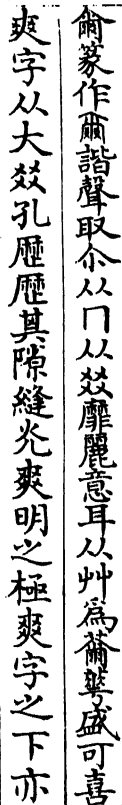 爾篆作爾諧聲取尒从冂从㸚靡麗意耳从艸為薾蕚盛可喜
爽字从大㸚孔歷歷其隙縫光爽明之極爽字之下亦